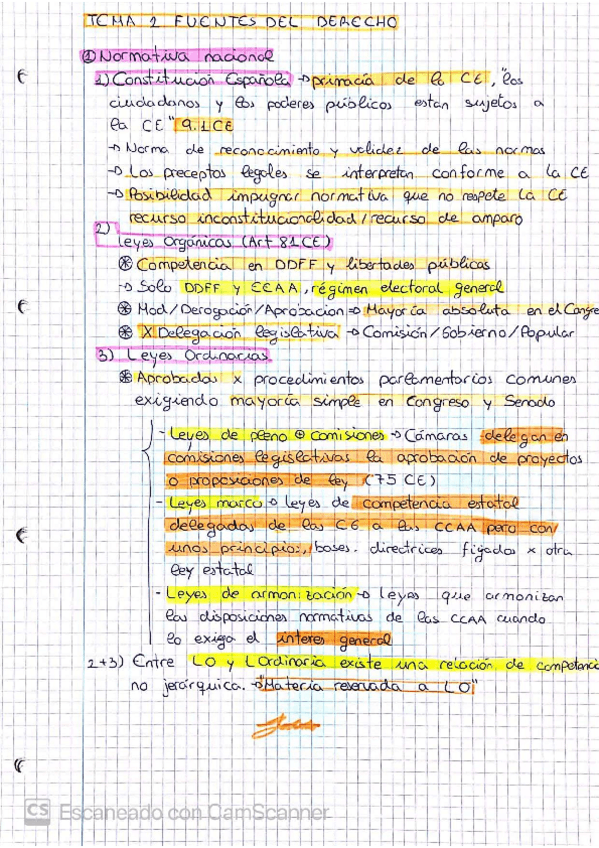 TEMA 2 FUENTES DEL DERECHO
① Normativa nacional
1) Constitución Española → primacía de la CE, "los
ciudadanos y los poderes públicos estan sujetos a
la CE" 9.1 CE
→ Norma de reconocimiento y validez de las normas
→ Los preceptos legales se interpretan conforme a la CE
→ Posibilidad impugnar normativa que no respete la CE
recurso inconstitucionalidad / recurso de amparo
2)
Leyes Orgánicas (Art 81 CE)
⊛ Competencia en DDFF y libertades públicas
→ Solo DDFF y CCAA, régimen electoral general
⊛ Mod/Derogación/Aprobacion → Mayoría absoluta en el Congre
⊛ X Delegación legislativa → Comisión/Gobierno/Popular
3) Leyes Ordinarias
⊛ Aprobadas x procedimientos parlamentarios comunes
exigiendo mayoría simple en Congreso y Senado
- Leyes de pleno o comisiones → Cámaras delegan en
comisiones legislativas la aprobación de proyectos
o proposiciones de ley (75 CE)
- Leyes marco → leyes de competencia estatal
delegadas de las CG a las CCAA pero con
unos principios, bases. directrices fijadas x otra
ley estatal
- Leyes de armonización → leyes que armonizan
las disposiciones normativas de las CCAA cuando
lo exiga el interes general
2+3) Entre LO y LOrdinaria existe una relación de competencia
no jerárquica. → "Materia reservada a LO"
CS Escaneado con CamScanner